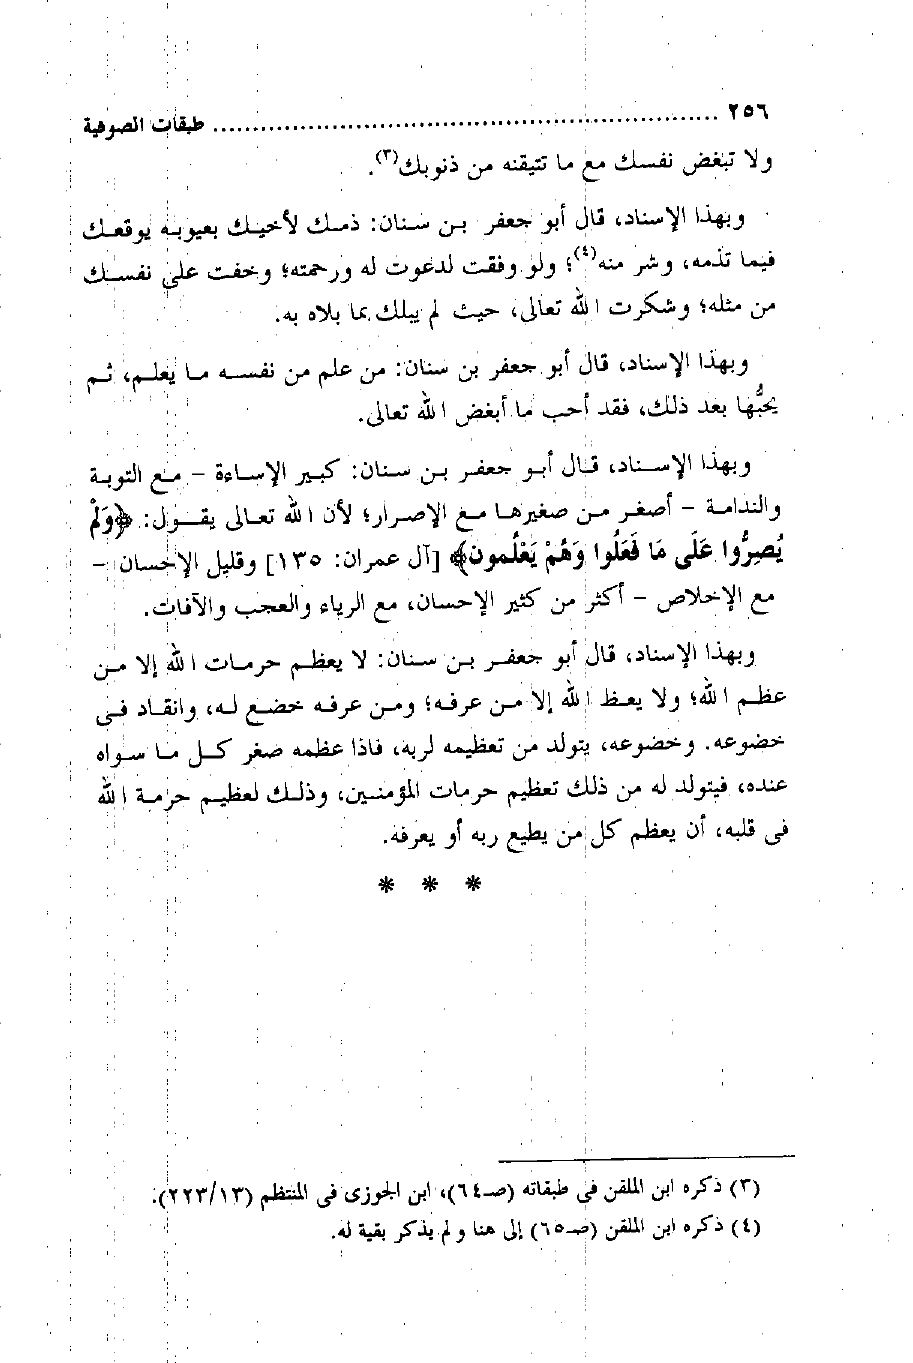 ٢٥٦ ........................................................ طبقات الصوفية
ولا تبغض نفسك مع ما تتيقنه من ذنوبك(٣).
وبهذا الإسناد، قال أبو جعفر بن سنان: ذمك لأخيك بعيوبه يوقعك
فيما تذمه، وشر منه(٤)؛ ولو وفقت لدعوت له ورحمته؛ وخفت على نفسك
من مثله؛ وشكرت الله تعالى، حيث لم يبلك بما بلاه به.
وبهذا الإسناد، قال أبو جعفر بن سنان: من علم من نفسه ما يعلم، ثم
يحبُّها بعد ذلك، فقد أحب ما أبغض الله تعالى.
وبهذا الإسناد، قال أبو جعفر بن سنان: كبير الإساءة - مع التوبة
والندامة - أصغر من صغيرها مع الإصرار؛ لأن الله تعالى يقول: ﴿وَلَمْ
يُصِرُّوا عَلَى مَا فَعَلُوا وَهُمْ يَعْلَمون﴾ [آل عمران: ١٣٥] وقليل الإحسان -
مع الإخلاص - أكثر من كثير الإحسان، مع الرياء والعجب والآفات.
وبهذا الإسناد، قال أبو جعفر بن سنان: لا يعظم حرمات الله إلا من
عظم الله؛ ولا يعظ الله إلا من عرفه؛ ومن عرفه خضع له، وانقاد فى
خضوعه. وخضوعه، يتولد من تعظيمه لربه، فاذا عظمه صغر كل ما سواه
عنده، فيتولد له من ذلك تعظيم حرمات المؤمنين، وذلك لعظيم حرمة الله
فى قلبه، أن يعظم كل من يطيع ربه أو يعرفه.
* * *
(٣) ذكره ابن الملقن فى طبقاته (صـ٦٤)، ابن الجوزى فى المنتظم (٢٢٣/١٣).
(٤) ذكره ابن الملقن (صـ٦٥) إلى هنا ولم يذكر بقية له.